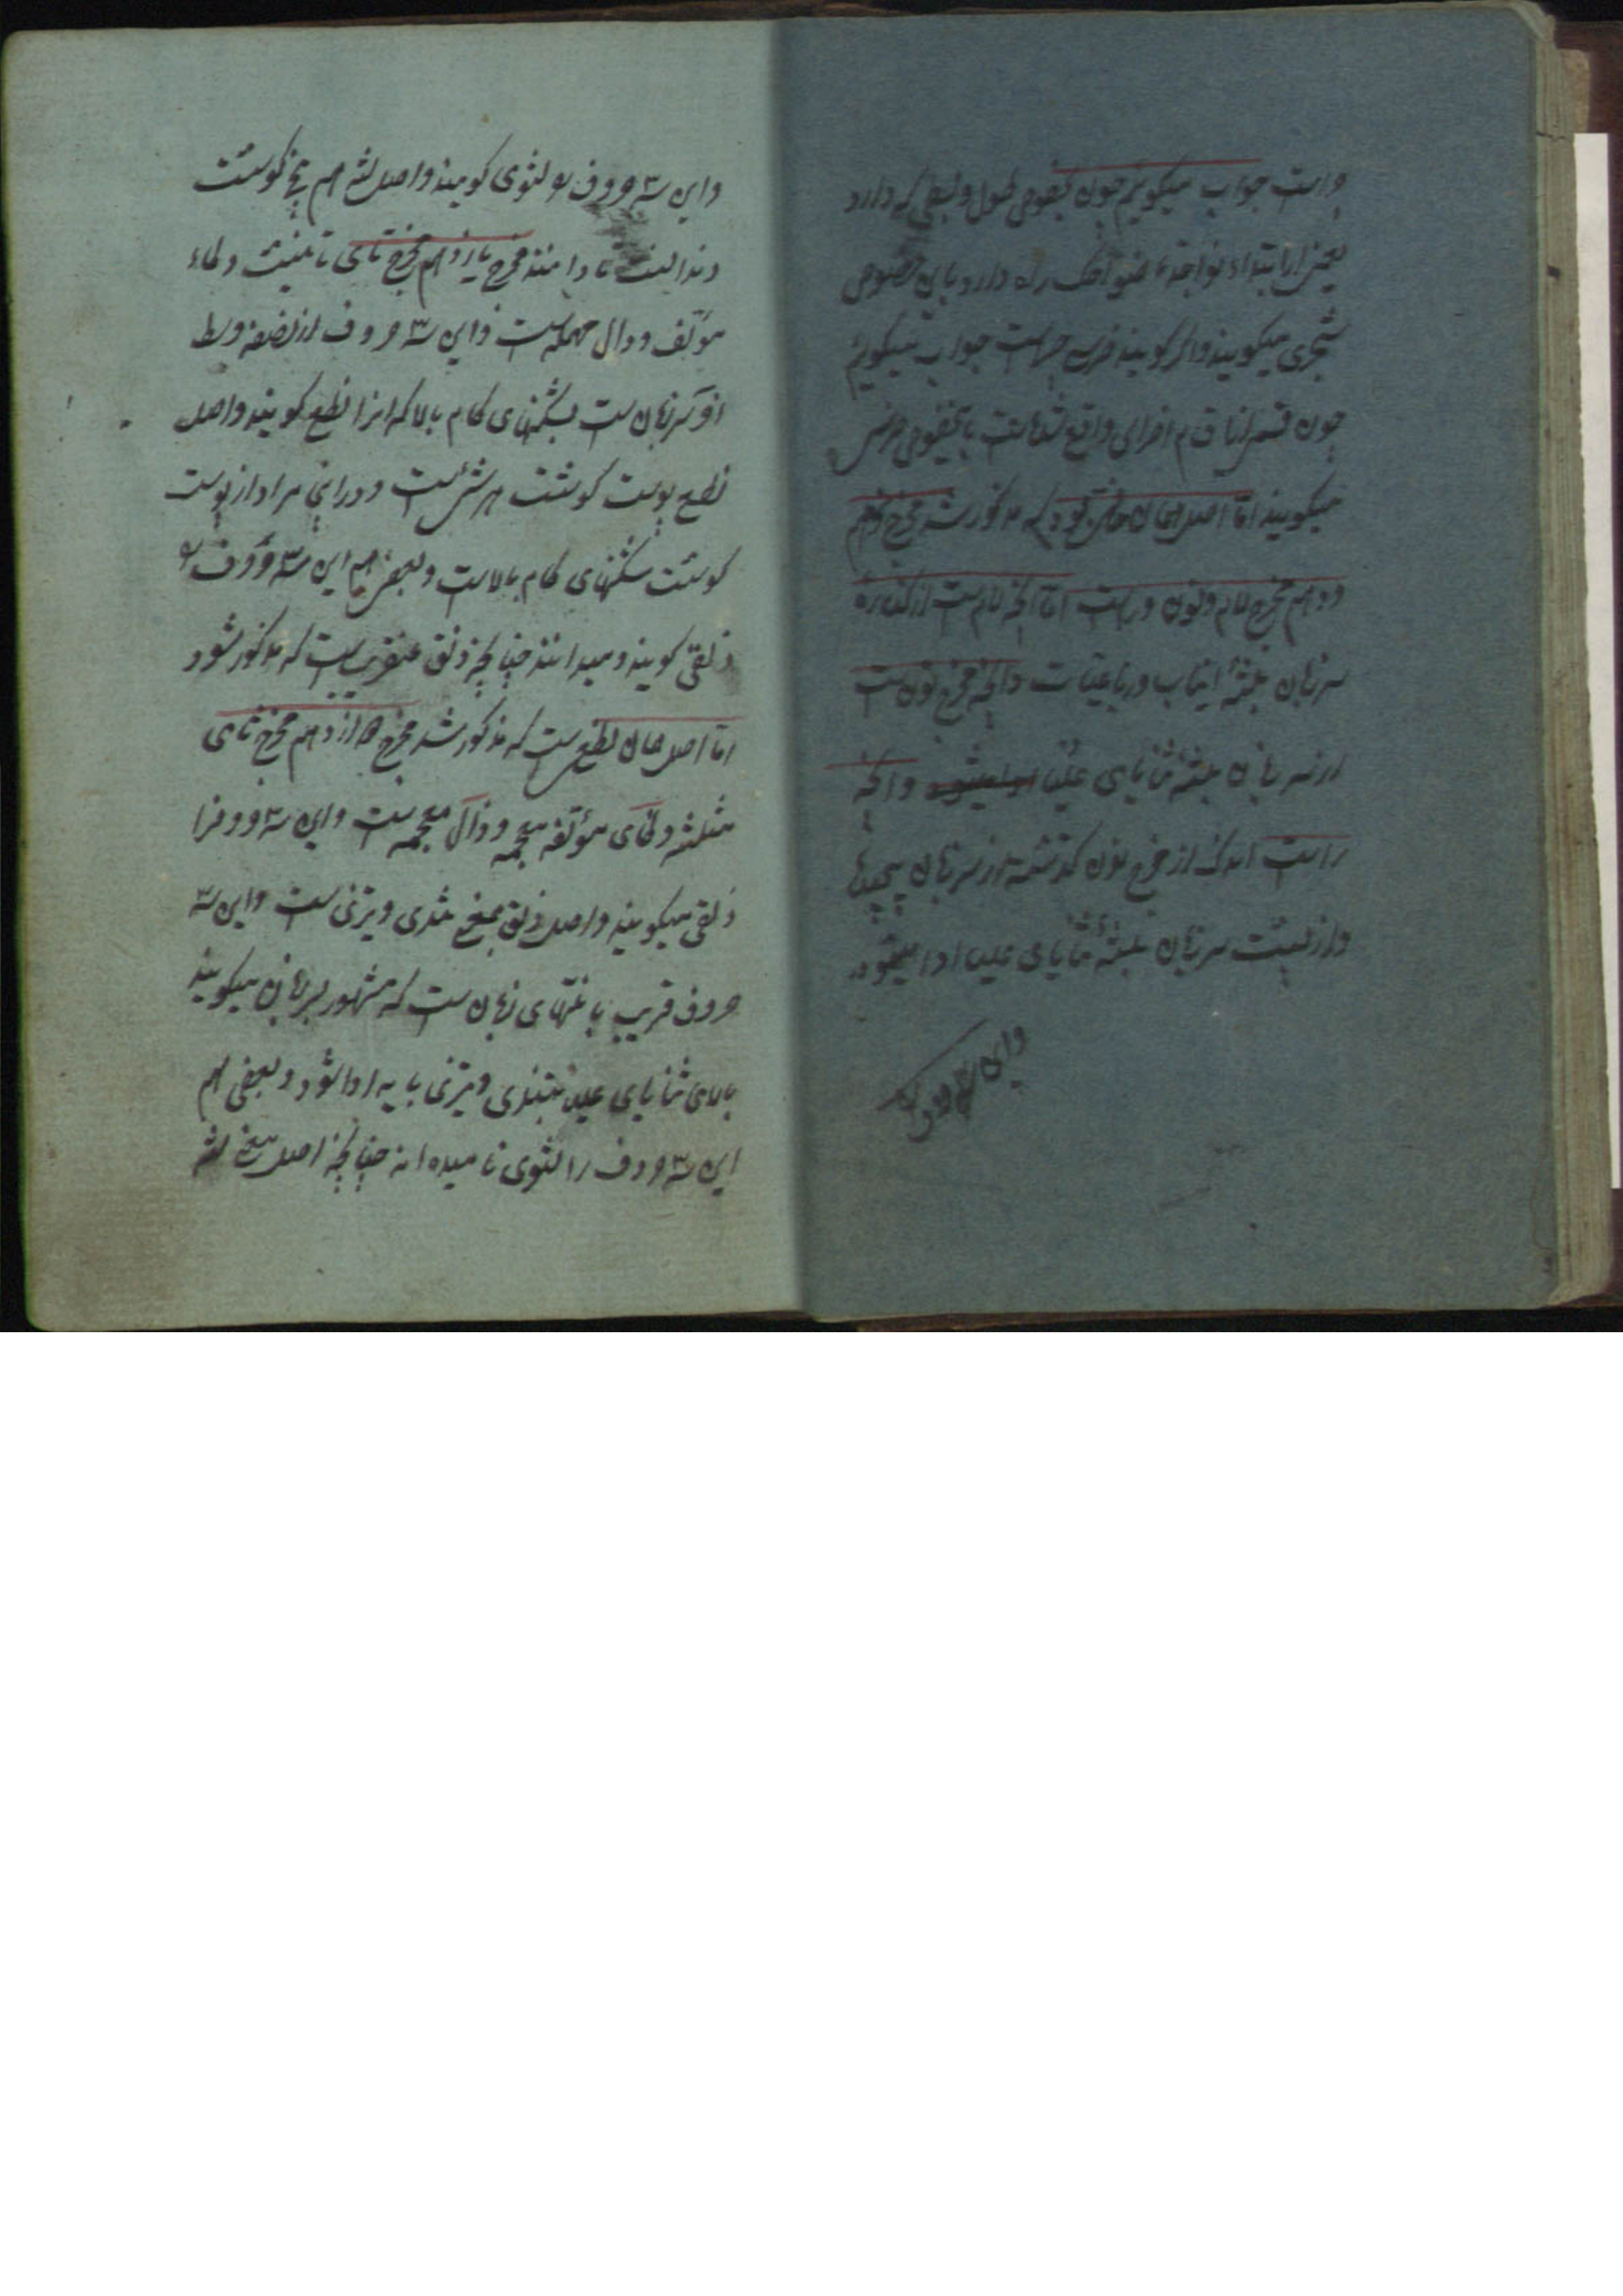 واست جواب میکویم چون بعوض طول وبعی که دارد
یعنی از ابتداء نواجذ تا ضواحک راه دارد باین خصوص
شجری میکویند واکر کویند ضرس چراست جواب میکویم
چون قسم از اقسام اضراس واقع شده است باین خصوص ضرس
میکویند امّا اصل همان بود که مذکور شد مخرج
دهم مخرج لام ونون وراست امّا آنچه لام است از کناره
سر زبان بلثهٔ انیاب ورباعیات وآنچه مخرج نون است
از سر زبان بلثهٔ ثنایای علیا ادا میشود وآنچه
راست اندک از مخرج نون کذشته از سر زبان
واز پشت سر زبان بلثهٔ ثنایای علیا ادا میشود
واین سه حروف
واین سه حروف را لثوی کویند واصل لثه هم بیخ کوشت
دندان است تا دانند مخرج یازدهم مخرج تای تانیث وطاء
مؤلف ودال مهمله است واین سه حروف از نصفه وسط
سر زبان است بشکنهای کام بالا که انرا نطع کویند واصل
نطع پوست کوشت هر شئ است ودراینجا مراد از پوست
کوشت شکنهای کام بالاست وبعضی هم این سه حروف را
ذلقی کویند ومیدانند چنانچه ذلق عنقریب است که مذکور شود
امّا اصل همان نطع است که مذکور شد مخرج دوازدهم مخرج ثای
مثلثه وظای مؤلفه معجمه وذال معجمه است واین سه حروف را
ذلقی میکویند واصل ذلق بمعنی تندی وتیزی است واین سه
حروف قریب بانتهای زبان است که مشهور بسر زبان میکویند
بالای ثنایای علیا بتندی وتیزی باید ادا شود وبعضی هم
این سه حروف را لثوی نامیده اند چنانچه اصل بیخ لثه